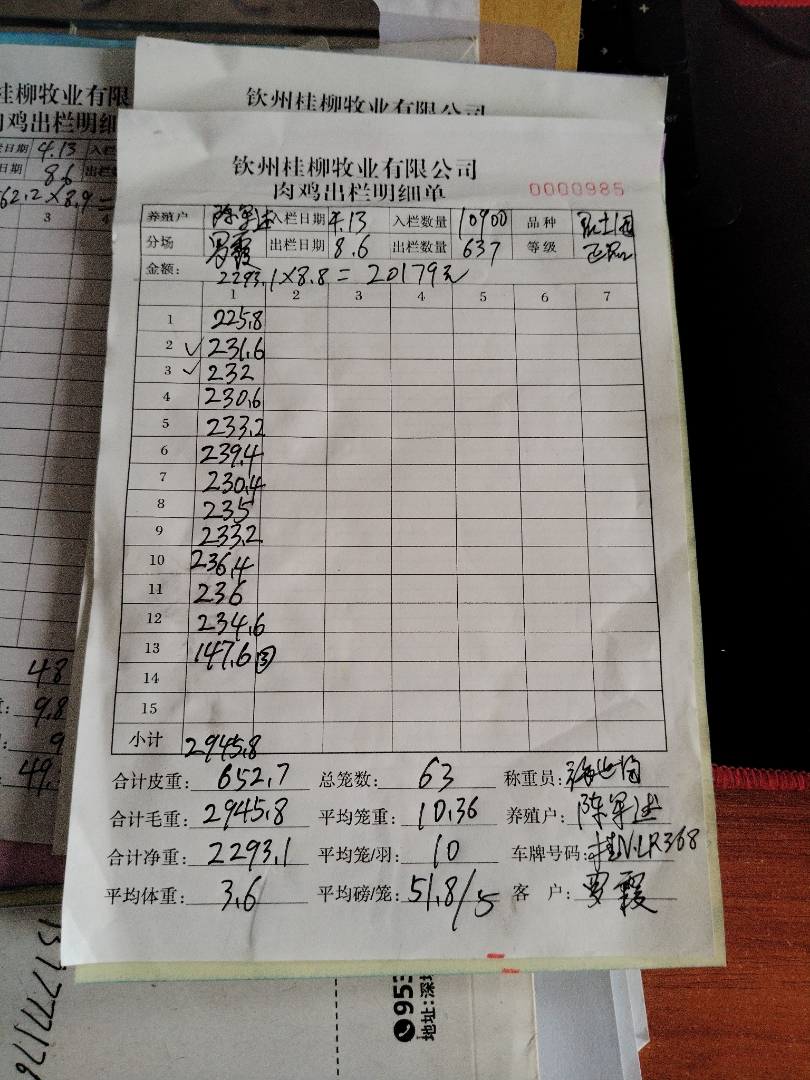 钦州桂柳牧业有限公司
桂柳牧业有限
肉鸡出栏明细
日期 4.13 入栏
日期 8.6 出栏
62.2×8.9=
3 4
48
9.8
9
49.
钦州桂柳牧业有限公司
肉鸡出栏明细单 0000985
养殖户 陈军述 入栏日期 4.13 入栏数量 10900 品种
分场 罗霞 出栏日期 8.6 出栏数量 637 等级 正品
金额: 2293.1×8.8=20179元
1 2 3 4 5 6 7
1 225.8
2 ✓ 231.6
3 ✓ 232
4 230.6
5 233.2
6 239.4
7 230.4
8 235
9 233.2
10 236.4
11 236
12 234.6
13 147.6 ③
14
15
小计 2945.8
合计皮重: 652.7 总笼数: 63 称重员:
合计毛重: 2945.8 平均笼重: 10.36 养殖户: 陈军述
合计净重: 2293.1 平均笼/羽: 10 车牌号码: 桂N·LR368
平均体重: 3.6 平均磅/笼: 51.8/5 客 户: 罗霞
953
地址:深圳